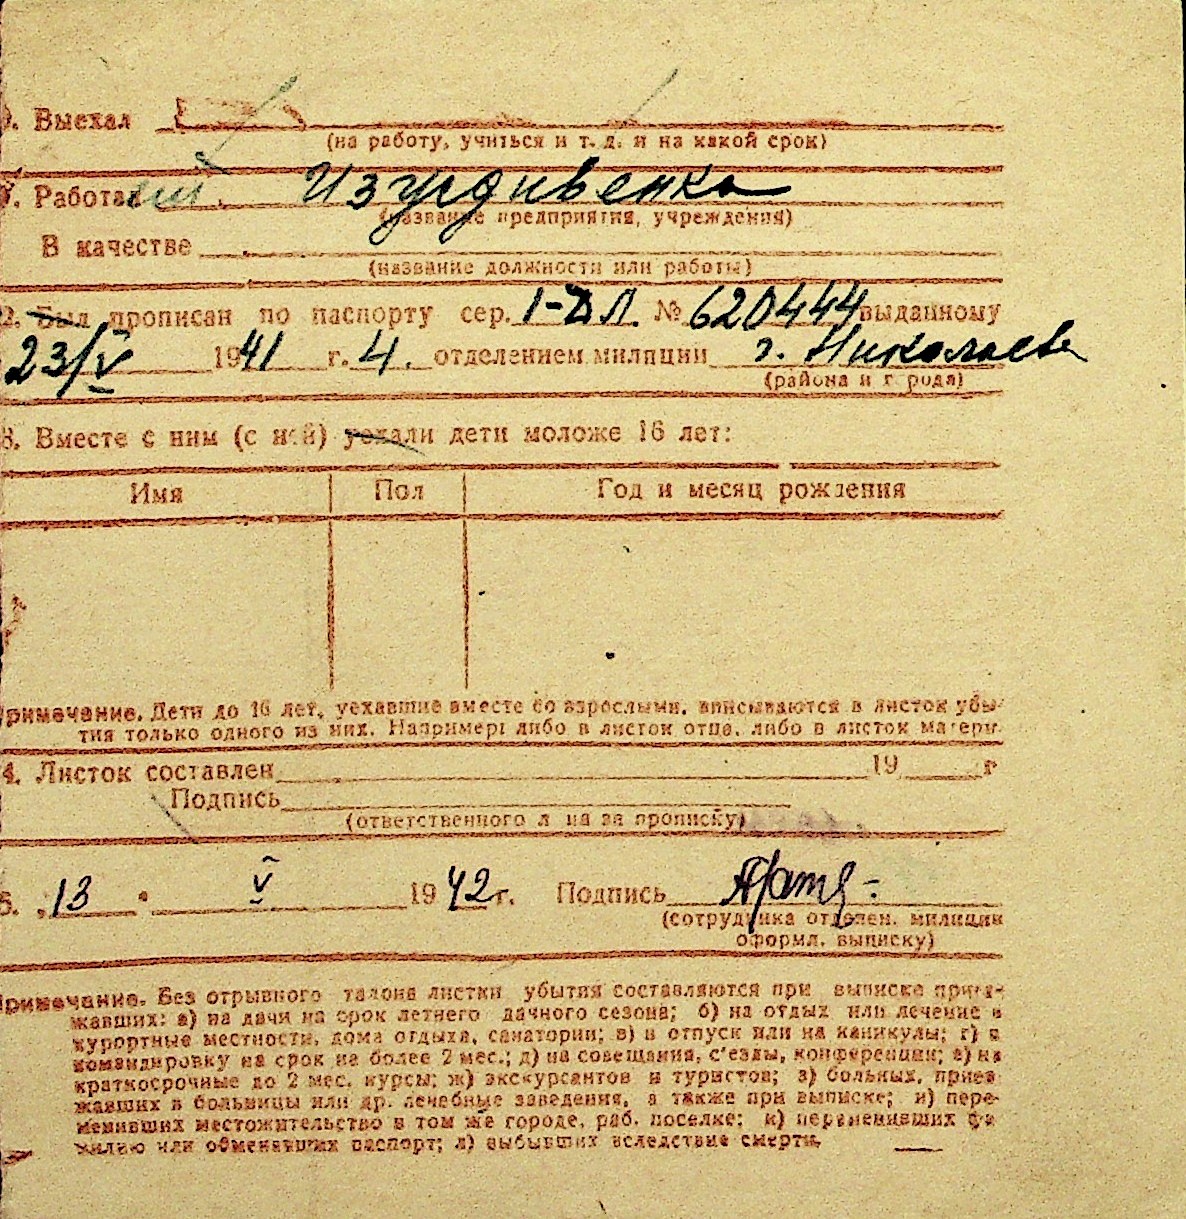 Выехал
(на работу, учиться и т. д. и на какой срок)
Работа
(название предприятия, учреждения)
В качестве
(название должности или работы)
2. Был прописан по паспорту сер. № 620444 выданному
23/V 1941 г. 4. отделением милиции г. Николаева
(района и города)
3. Вместе с ним (с ней) уехали дети моложе 16 лет:
Имя Пол Год и месяц рождения
римечание. Дети до 16 лет, уехавшие вместе со взрослыми, вписываются в листок убы-
тия только одного из них. Например: либо в листок отца, либо в листок матери.
4. Листок составлен 19 г
Подпись
(ответственного лица за прописку)
5. 13 V 1942 г. Подпись
(сотрудника отделен. милиции
оформл. выписку)
римечание. Без отрывного талона листки убытия составляются при выписке приез-
жавших: а) на дачи на срок летнего дачного сезона; б) на отдых или лечение в
курортные местности, дома отдыха, санатории; в) в отпуск или на каникулы; г) в
командировку на срок не более 2 мес.; д) на совещания, с'езды, конференции; е) на
краткосрочные до 2 мес. курсы; ж) экскурсантов и туристов; з) больных, приез-
жавших в больницы или др. лечебные заведения, а также при выписке; и) пере-
менивших местожительство в том же городе, раб. поселке; к) переменивших фа-
милию или обменявших паспорт; л) выбывших вследствие смерти.